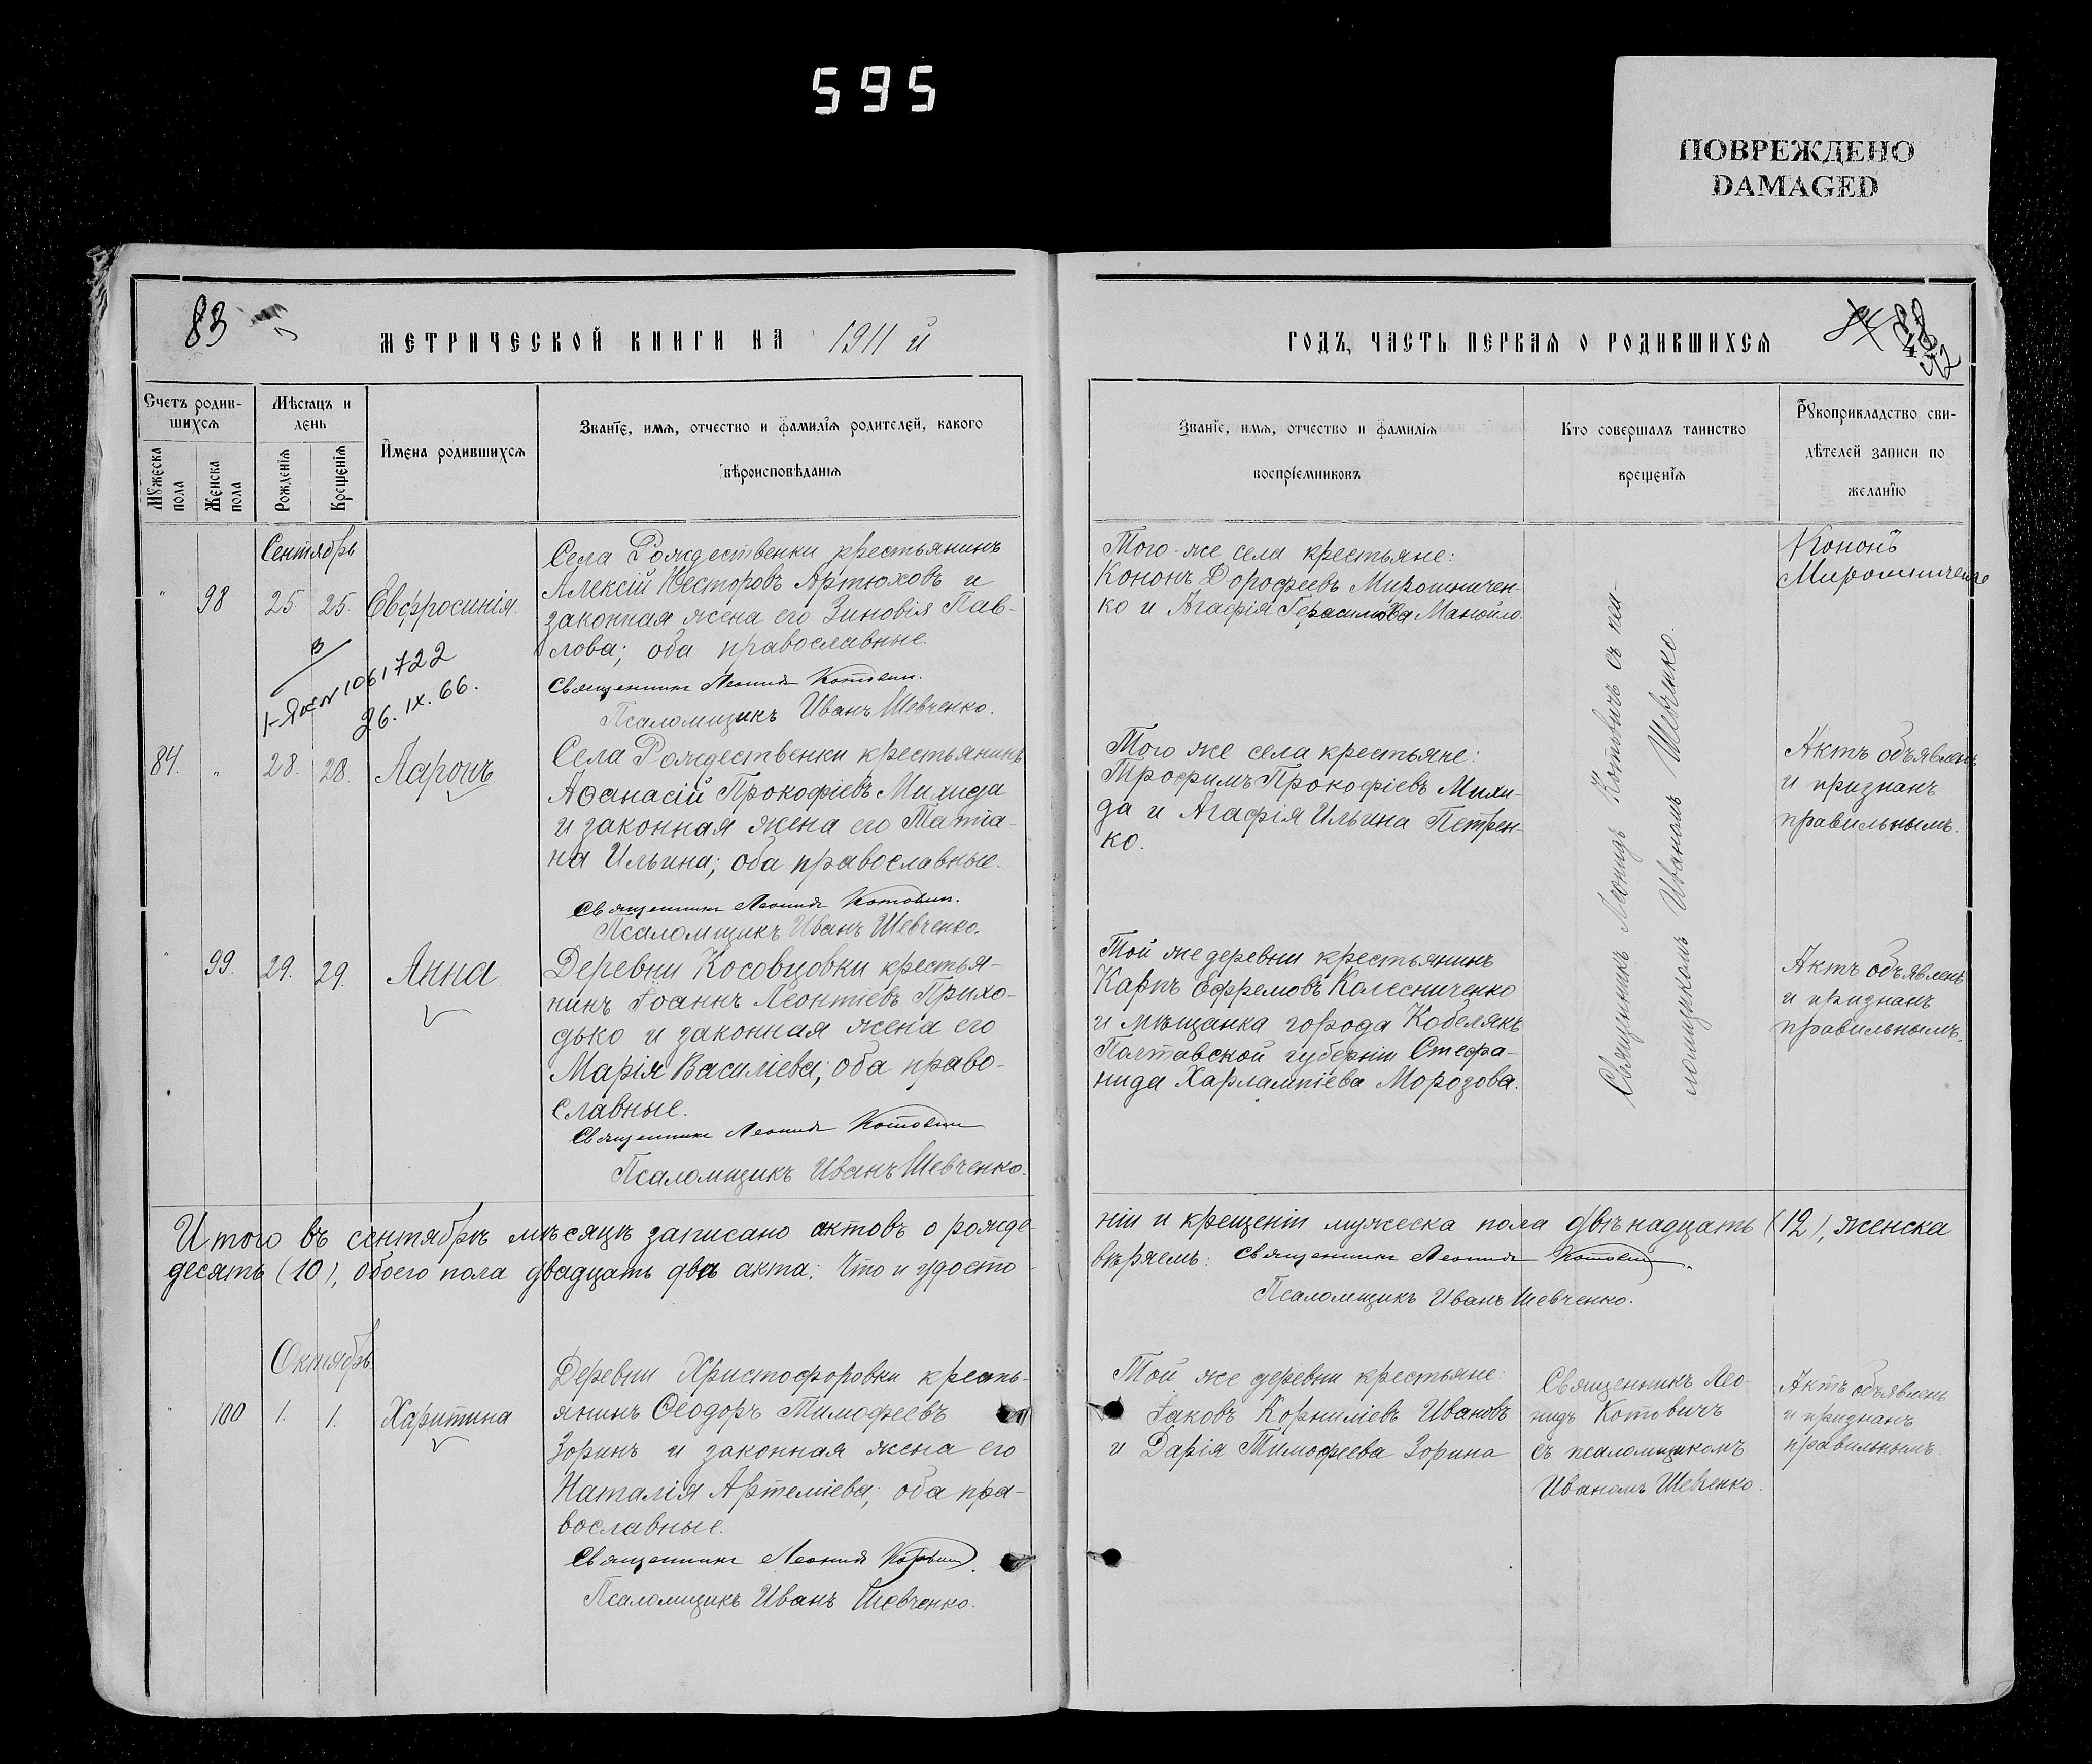 595
ПОВРЕЖДЕНО
DAMAGED
83
МЕТРИЧЕСКОЙ КНИГИ НА 1911 й
Счетъ родив-
шихся
Мѣсяцъ и
день
Имена родившихся
Званіе, имя, отчество и фамилія родителей, какого
вѣроисповѣданія
Мужеска
пола
Женска
пола
Рожденія
Крещенія
Сентябрь
" 98 25. 25. Евфросинія
Села Рождественки крестьянинъ
Алексій Несторовъ Артюховъ и
законная жена его Зиновія Пав-
лова; оба православные.
Священникъ Леонидъ Котович.
Псаломщикъ Иванъ Шевченко.
1061722
26. IX. 66.
84. " 28. 28. Ааронъ
Села Рождественки крестьянинъ
Аѳанасій Прокофіевъ Михида
и законная жена его Татіа-
на Ильина; оба православные.
Священникъ Леонидъ Котович.
Псаломщикъ Иванъ Шевченко.
" 99. 29. 29. Анна
Деревни Косовцовки крестья-
нинъ Іоаннъ Леонтіевъ Прихо-
дько и законная жена его
Марія Василіева; оба право-
славные.
Священникъ Леонидъ Котович
Псаломщикъ Иванъ Шевченко.
Итого въ сентябрѣ мѣсяцѣ записано актовъ о рожде-
десять (10), обоего пола двадцать два акта. Что и удосто-
Октябрь
" 100 1. 1. Харитина
Деревни Христофоровки кресть-
янинъ Ѳеодоръ Тимофеевъ
Зоринъ и законная жена его
Наталія Артеміева; оба пра-
вославные.
Священникъ Леонидъ Котович.
Псаломщикъ Иванъ Шевченко.
ГОДЪ, ЧАСТЬ ПЕРВАЯ О РОДИВШИХСЯ
84 88
Званіе, имя, отчество и фамилія
воспріемниковъ
Кто совершалъ таинство
крещенія
Рукоприкладство сви-
дѣтелей записи по
желанію
Того-же села крестьяне:
Кононъ Дорофеевъ Мирошничен-
ко и Агафія Герасимова Манойло.
Кононъ
Мирошниченко
Священникъ Леонидъ Котовичъ съ пса-
ломщикомъ Иваномъ Шевченко.
Того же села крестьяне:
Трофимъ Прокофіевъ Михи-
да и Агафія Ильина Петрен-
ко.
Актъ объявленъ
и признанъ
правильнымъ.
Той же деревни крестьянинъ
Карпъ Ефремовъ Колесниченко
и мѣщанка города Кобелякъ
Полтавской губерніи Стефа-
нида Харлампіева Морозова.
Актъ объявленъ
и признанъ
правильнымъ.
ніи и крещеніи мужеска пола двѣнадцать (12), женска
вѣряемъ: Священникъ Леонидъ Котович.
Псаломщикъ Иванъ Шевченко.
Той же деревни крестьяне:
Іаковъ Корниліевъ Ивановъ
и Дарія Тимофеева Зорина
Священникъ Лео-
нидъ Котовичъ
съ псаломщикомъ
Иваномъ Шевченко.
Актъ объявленъ
и признанъ
правильнымъ.